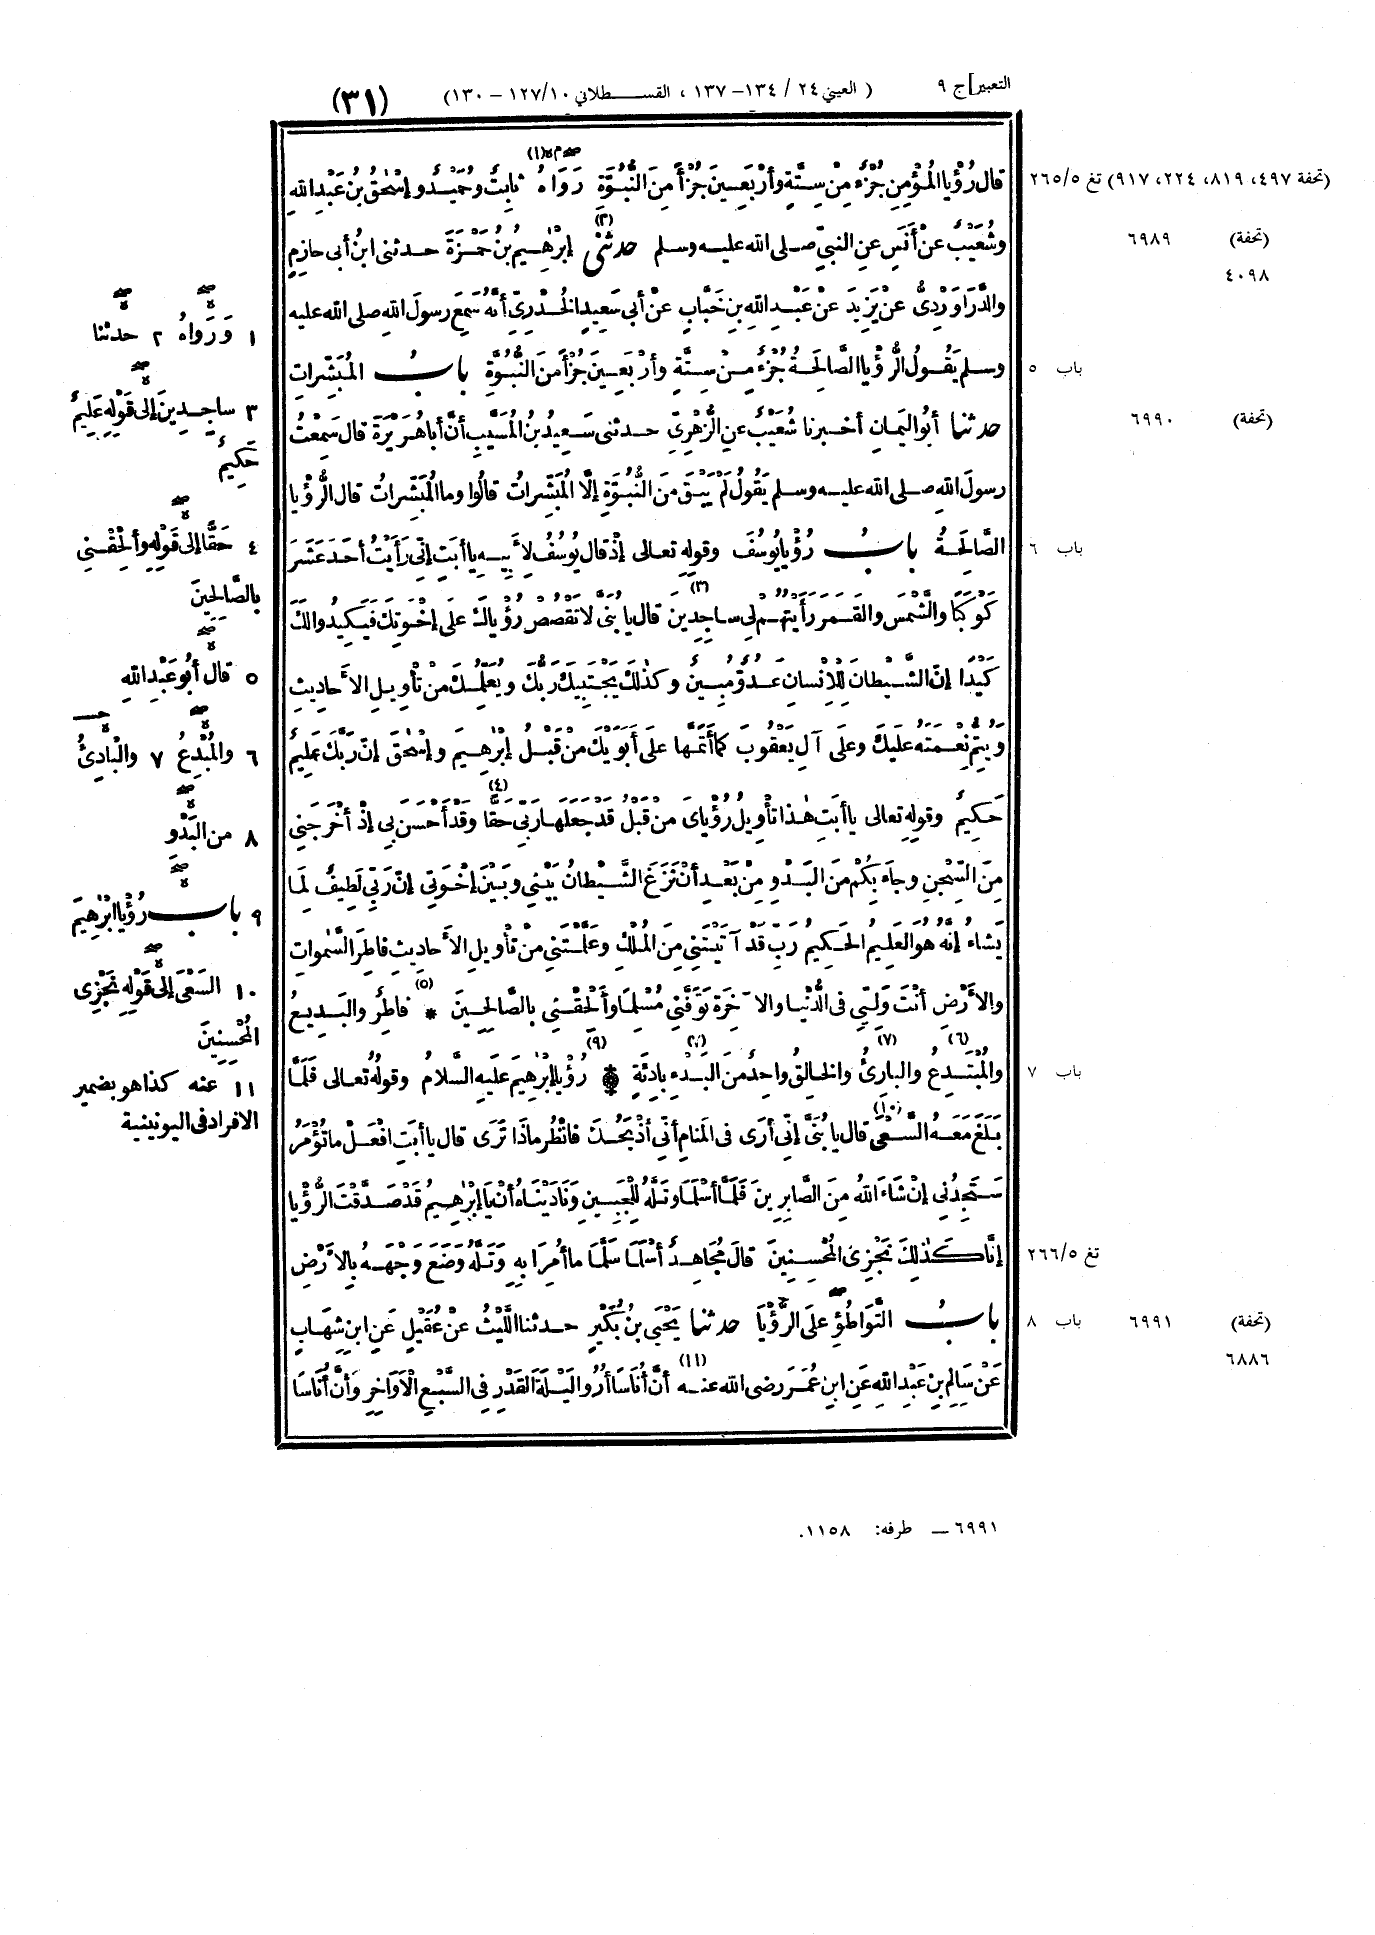 التعبير] ج ٩
( العيني ٢٤ / ١٣٤ – ١٣٧ ، القسطلاني ١٠/ ١٢٧ – ١٣٠)
(٣١)
(تحفة ٤٩٧، ٨١٩، ٢٢٤، ٩١٧) تغ ٢٦٥/٥
قال رُؤْيا المُؤْمِنِ جُزْءٌ مِنْ سِتَّةٍ وأرْبَعِينَ جُزْأً مِنَ النُّبُوَّةِ (١) رَوَاهُ ثابِتٌ وحُمَيْدٌ وإسْحٰقُ بنُ عَبْدِ الله
وشُعَيْبٌ عنْ أنَسٍ عنِ النبيِّ صلى الله عليه وسلم حدثني (٢) إبْرٰهِيمُ بنُ حَمْزَةَ حدثنى ابنُ أبى حازِمٍ
(تحفة) ٦٩٨٩
٤٠٩٨
والدَّرَاوَرْدِىُّ عنْ يَزِيدَ عنْ عَبْدِ اللهِ بنِ خَبَّابٍ عنْ أبى سَعِيدٍ الخُدْرِىِّ أنَّهُ سَمِعَ رسولَ اللهِ صلى الله عليه
وسلم يَقُولُ الرُّؤْيا الصَّالِحَةُ جُزْءٌ مِنْ سِتَّةٍ وأرْبَعِينَ جُزْأً مِنَ النُّبُوَّةِ بابُ المُبَشِّراتِ
باب ٥
حدثنا أبُو اليَمانِ أخبرنا شُعَيْبٌ عنِ الزُّهْرِىِّ حدثنى سَعِيدُ بنُ المُسَيَّبِ أنَّ أبا هُرَيْرَةَ قال سَمِعْتُ
(تحفة) ٦٩٩٠
رسولَ اللهِ صلى الله عليه وسلم يَقُولُ لَمْ يَبْقَ مِنَ النُّبُوَّةِ إلَّا المُبَشِّراتُ قالُوا وما المُبَشِّراتُ قال الرُّؤْيا
الصَّالِحَةُ بابُ رُؤْيا يُوسُفَ وقولِهِ تعالى إذْ قال يُوسُفُ لأَبِيهِ يا أبَتِ إنِّى رَأَيْتُ أحَدَ عَشَرَ
باب ٦
كَوْكَبًا والشَّمْسَ والقَمَرَ رَأَيْتُهُمْ لِى ساجِدِينَ (٣) قال يا بُنَىَّ لا تَقْصُصْ رُؤْياكَ علَى إخْوَتِكَ فَيَكِيدُوا لَكَ
كَيْدًا إنَّ الشَّيْطانَ لِلْإِنْسانِ عَدُوٌّ مُبِينٌ وكذٰلِكَ يَجْتَبِيكَ رَبُّكَ ويُعَلِّمُكَ مِنْ تَأْوِيلِ الأَحادِيثِ
ويُتِمُّ نِعْمَتَهُ عليكَ وعلَى آلِ يَعْقُوبَ كَما أتَمَّها علَى أبَوَيْكَ مِنْ قَبْلُ إبْرٰهِيمَ وإسْحٰقَ إنَّ رَبَّكَ عَلِيمٌ
حَكِيمٌ وقولِهِ تعالى يا أبَتِ هٰذا تَأْوِيلُ رُؤْياىَ مِنْ قَبْلُ قَدْ جَعَلَها رَبِّى حَقًّا (٤) وقَدْ أحْسَنَ بِى إذْ أخْرَجَنِى
مِنَ السِّجْنِ وجاءَ بِكُمْ مِنَ البَدْوِ مِنْ بَعْدِ أنْ نَزَغَ الشَّيْطانُ بَيْنِى وبَيْنَ إخْوَتِى إنَّ رَبِّى لَطِيفٌ لِما
يَشاءُ إنَّهُ هُوَ العَلِيمُ الحَكِيمُ رَبِّ قَدْ آتَيْتَنِى مِنَ المُلْكِ وعَلَّمْتَنِى مِنْ تَأْوِيلِ الأَحادِيثِ فاطِرَ السَّمٰواتِ
والأَرْضِ أنْتَ وَلِيِّى فى الدُّنْيا والآخِرَةِ تَوَفَّنِى مُسْلِمًا وألْحِقْنِى بالصَّالِحِينَ (٥) * فاطِرٌ والبَدِيعُ
والمُبْتَدِعُ (٦) والبارِئُ (٧) والخالِقُ واحِدٌ مِنَ البَدْءِ (٨) بادِئَةٍ * (٩) رُؤْيا إبْرٰهِيمَ عليهِ السَّلامُ وقولُهُ تعالى فَلَمَّا
باب ٧
بَلَغَ مَعَهُ السَّعْىَ (١٠) قال يا بُنَىَّ إنِّى أرَى فى المَنامِ أنِّى أذْبَحُكَ فانْظُرْ ماذَا تَرَى قال يا أبَتِ افْعَلْ ما تُؤْمَرُ
سَتَجِدُنِى إنْ شَاءَ اللهُ مِنَ الصَّابِرِينَ فَلَمَّا أسْلَمَا وتَلَّهُ لِلْجَبِينِ ونَادَيْنَاهُ أنْ يَا إبْرٰهِيمُ قَدْ صَدَّقْتَ الرُّؤْيا
إنَّا كَذٰلِكَ نَجْزِى المُحْسِنِينَ قالَ مُجَاهِدٌ أسْلَمَا سَلَّمَا ما أُمِرَا بِهِ وتَلَّهُ وضَعَ وجْهَهُ بِالأَرْضِ
تغ ٢٦٦/٥
بابُ التَّوَاطُؤِ علَى الرُّؤْيَا حدثنا يَحْيَى بنُ بُكَيْرٍ حدثنا اللَّيْثُ عنْ عُقَيْلٍ عَنِ ابنِ شِهَابٍ
باب ٨ ٦٩٩١ (تحفة)
٦٨٨٦
عَنْ سَالِمِ بنِ عَبْدِ اللهِ عَنِ ابنِ عُمَرَ رضى الله عنه (١١) أنَّ أُنَاسًا أُرُوا لَيْلَةَ القَدْرِ فِى السَّبْعِ الأَوَاخِرِ وأنَّ أُنَاسًا
١ ورَوَاهُ ٢ حدثنا
٣ ساجِدِينَ إلى قَوْلِهِ عَلِيمٌ
حَكِيمٌ
٤ حَقًّا إلى قَوْلِهِ وألْحِقْنِى
بالصَّالِحِينَ
٥ قال أبُو عَبْدِ اللهِ
٦ والمُبْدِعُ ٧ والْبادِئُ
٨ من البَدْوِ
٩ باب رُؤْيا إبْرٰهِيمَ
١٠ السَعْىَ إلى قَوْلِهِ نَجْزِى
المُحْسِنِينَ
١١ عنه كذا هو بضمير
الافراد فى اليونينية
٦٩٩١ — طرفه: ١١٥٨.